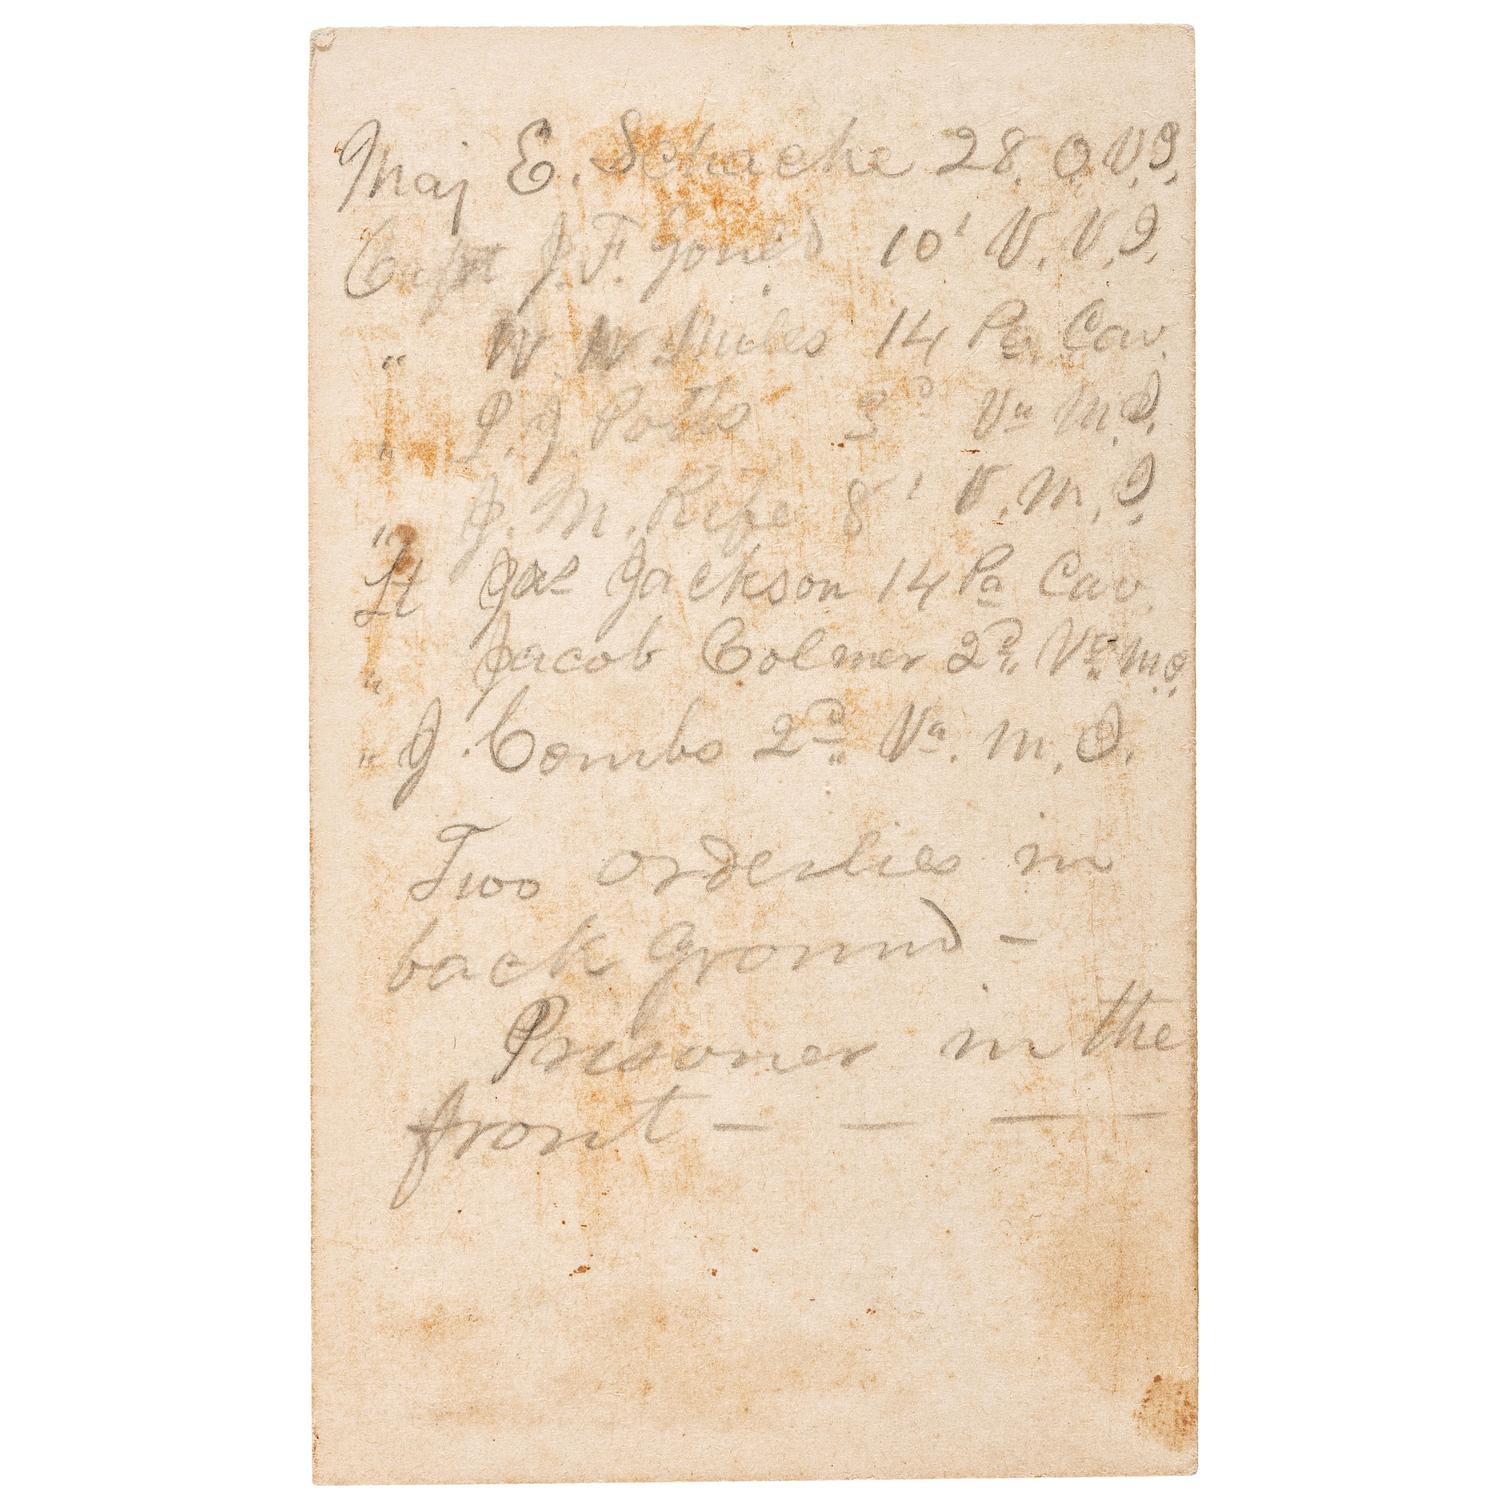 Maj E. Schache 28. O. V. I.
Capt J. F. Gould 10' V. V. I.
" W. W. Miles 14 Pa. Cav.
" P. J. Potts 3d Va M. I.
" J. M. Ripe 8' V. M. I.
Lt Jas Jackson 14 Pa Cav.
" Jacob Colmer 2d Va M I.
" J. Combs 2d Va. M. I.
Two orderlies in
back ground —
Prisoner in the
front — — —